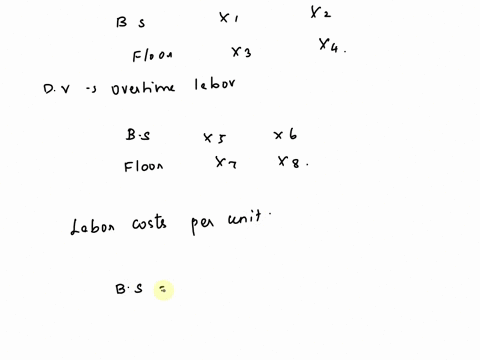 B s x1 x2
Floor x3 x4.
D.V -s overtime labor
B.s x5 x6
Floor x7 x8.
Labor costs per unit.
B.s =